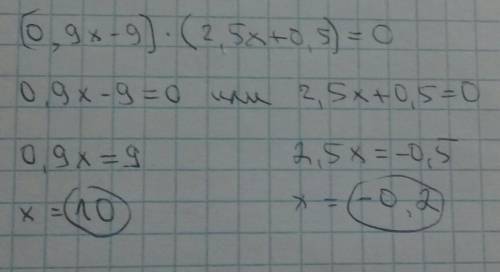 [0,9x-9]·(2,5x+0,5)=0
0,9x-9=0 или 2,5x+0,5=0
0,9x=9 2,5x=-0,5
x=10 x=-0,2